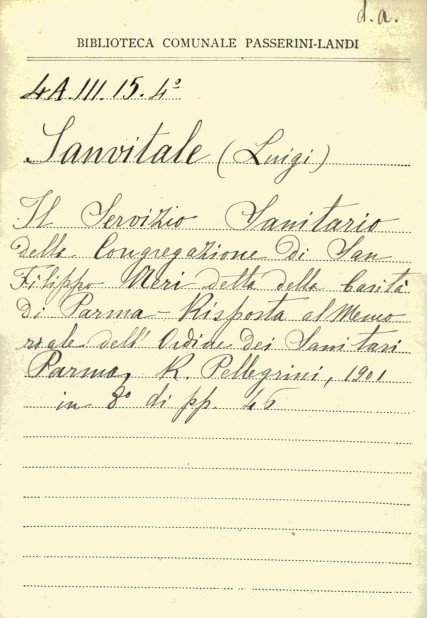 d. a.
BIBLIOTECA COMUNALE PASSERINI-LANDI
4A.III.15.4º
Sanvitale (Luigi)
Il Servizio Sanitario
della Congregazione di San
Filippo Neri detta della Carità
di Parma - Risposta al Memo
riale dell' Ordine dei Sanitari
Parma, R. Pellegrini, 1901
in 8º di pp. 46